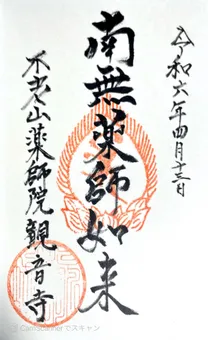 令和六年四月十三日
南無薬師如来
不老山薬師院観音寺
CamScannerでスキャン